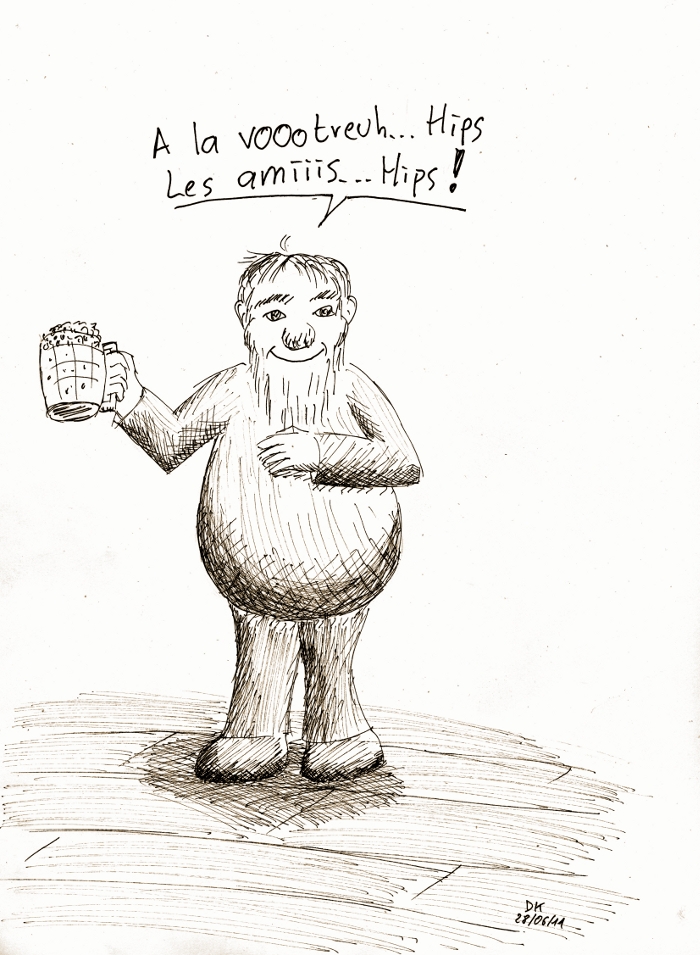 A la voootreuh... Hips
Les amiiis... Hips!
DK
28/06/11